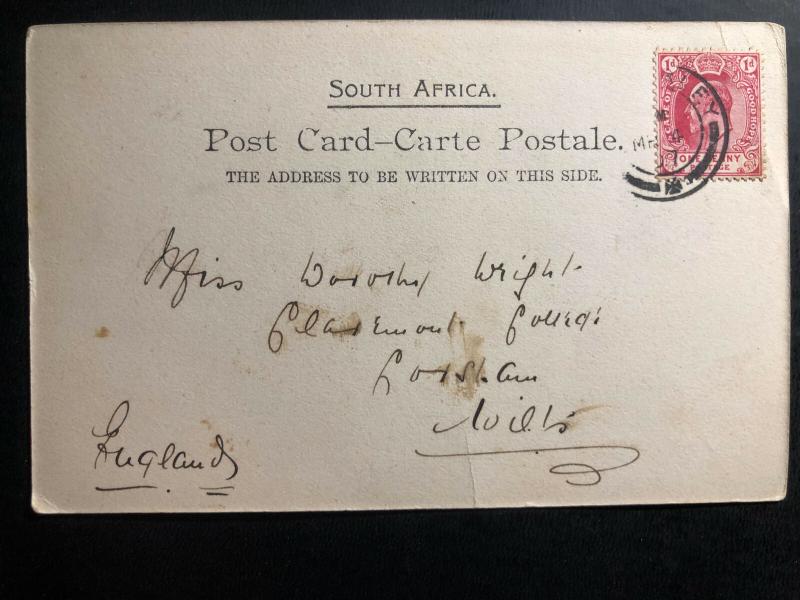 SOUTH AFRICA.
Post Card–Carte Postale.
THE ADDRESS TO BE WRITTEN ON THIS SIDE.
1d 1d
CAPE OF GOOD HOPE
ONE PENNY
POSTAGE
Miss Dorothy Wright
Claremont College
Corsham
Wilts
England